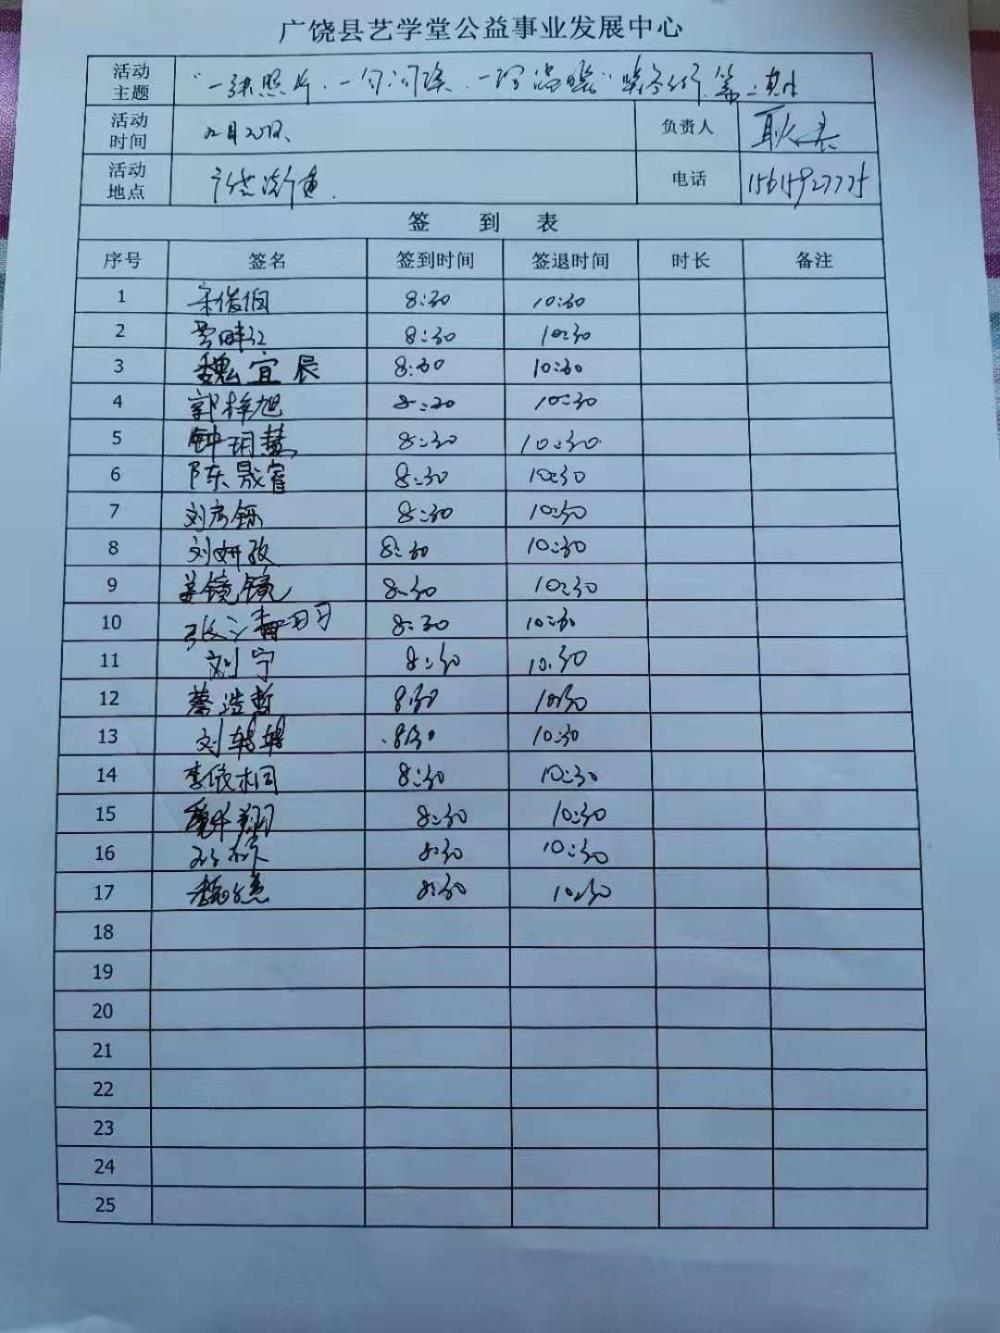 广饶县艺学堂公益事业发展中心
活动主题 "一张照片、一句问候、一份温暖" 第二期
活动时间 负责人
活动地点 电话 15615927775
签 到 表
序号 签名 签到时间 签退时间 时长 备注
1 8:30 10:30
2 8:30 10:30
3 魏宜辰 8:30 10:30
4 郭梓旭 8:30 10:30
5 钟玥慧 8:30 10:30
6 陈晟睿 8:30 10:30
7 刘彦铄 8:30 10:30
8 刘妍孜 8:30 10:30
9 姜镜镜 8:30 10:30
10 8:30 10:30
11 刘宁 8:30 10:30
12 蔡浩哲 8:30 10:30
13 刘轩轩 8:30 10:30
14 李依桐 8:30 10:30
15 8:30 10:30
16 8:30 10:30
17 8:30 10:30
18
19
20
21
22
23
24
25